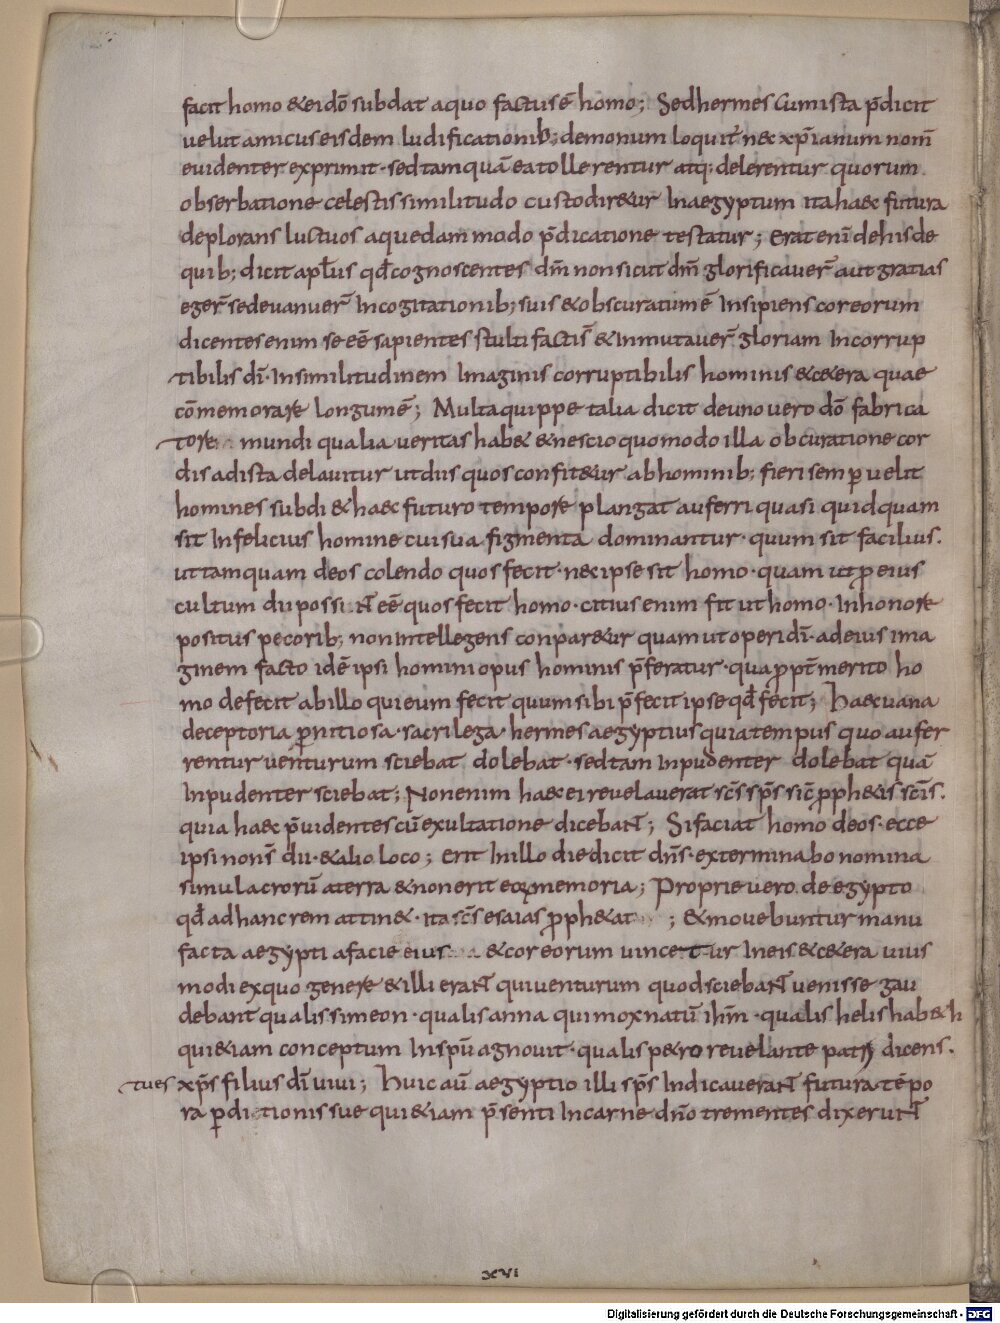 facit homo & ei dō subdat a quo factus ē homo; Sed hermes cum ista p̄dicit
velut amicus eisdem ludificationib; demonum loquit̄ nec xp̄ianum nom̄
evidenter exprimit · sed tamquā ea tollerentur atq; delerentur quorum
obserbatione celestis similitudo custodir&ur In aegyptum ita haec futura
deplorans luctuosa quedam modo p̄dicatione testatur; erat enī de his de
quib; dicit apl̄us qđ cognoscentes dm̄ non sicut dm̄ glorificaver̄ aut gratias
eger̄ sed evanuer̄ In cogitationib; suis & obscuratum ē Insipiens cor eorum
dicentes enim se eē sapientes stulti factis̄ & Inmutaver̄ gloriam Incorrup
tibilis dī · In similitudinem Imaginis corruptibilis hominis & c&era quae
cōmemorare longum ē; Multa quippe talia dicit de uno vero dō fabrica
tore mundi qualia veritas hab& & nescio quomodo illa obcuratione cor
dis ad ista delavitur ut diis quos confit&ur ab hominib; fieri semp̲ velit
homines subdi & haec futuro tempore plangat auferri quasi quidquam
sit Infelicius homine cui sua figmenta dominantur · quum sit facilius.
ut tamquam deos colendo quos fecit · nec ipse sit homo · quam ut p̲ eius
cultum dii possint eē quos fecit homo · citius enim fit ut homo · In honore
positus pecorib; non intellegens conpar&ur quam ut operi dī · ad eius ima
ginem facto idē ipsi homini opus hominis p̄feratur · quapropt̄ merito ho
mo defecit ab illo qui eum fecit quum sibi p̄fecit ipse qđ fecit; Haec vana
deceptoria p̲nitiosa · sacrilega · hermes aegyptius quia tempus quo aufer
rentur venturum sciebat dolebat · sed tam Inpudenter dolebat quā
Inpudenter sciebat; Non enim haec ei revelaverat sc̄s sp̄s sic̄ proph&is sc̄is.
quia haec p̄videntes cū exultatione dicebant; Si faciat homo deos · ecce
ipsi non s̄ dii · & alio loco; erit In illo die dicit dn̄s · exterminabo nomina
simulacrorū a terra & non erit eoꝝ memoria; Proprie vero de egypto
qđ ad hanc rem attin& · ita sc̄s esaias proph&at ; & movebuntur manu
facta aegypti a facie eius & cor eorum vincetur In eis & c&era uius
modi ex quo genere & illi erant qui venturum quod sciebant venisse gau
debant qualis simeon · qualis anna qui mox natū ihm̄ · qualis helishab&h
qui &iam conceptum In spū agnovit · qualis p&ro revelante patre dicens.
tu es xp̄s filius dī vivi; Huic aū aegyptio illi sp̄s Indicaverant futura tēpo
ra p̲ditionis sue qui &iam p̄senti In carne dn̄o trementes dixerunt
XVI
Digitalisierung gefördert durch die Deutsche Forschungsgemeinschaft - DFG